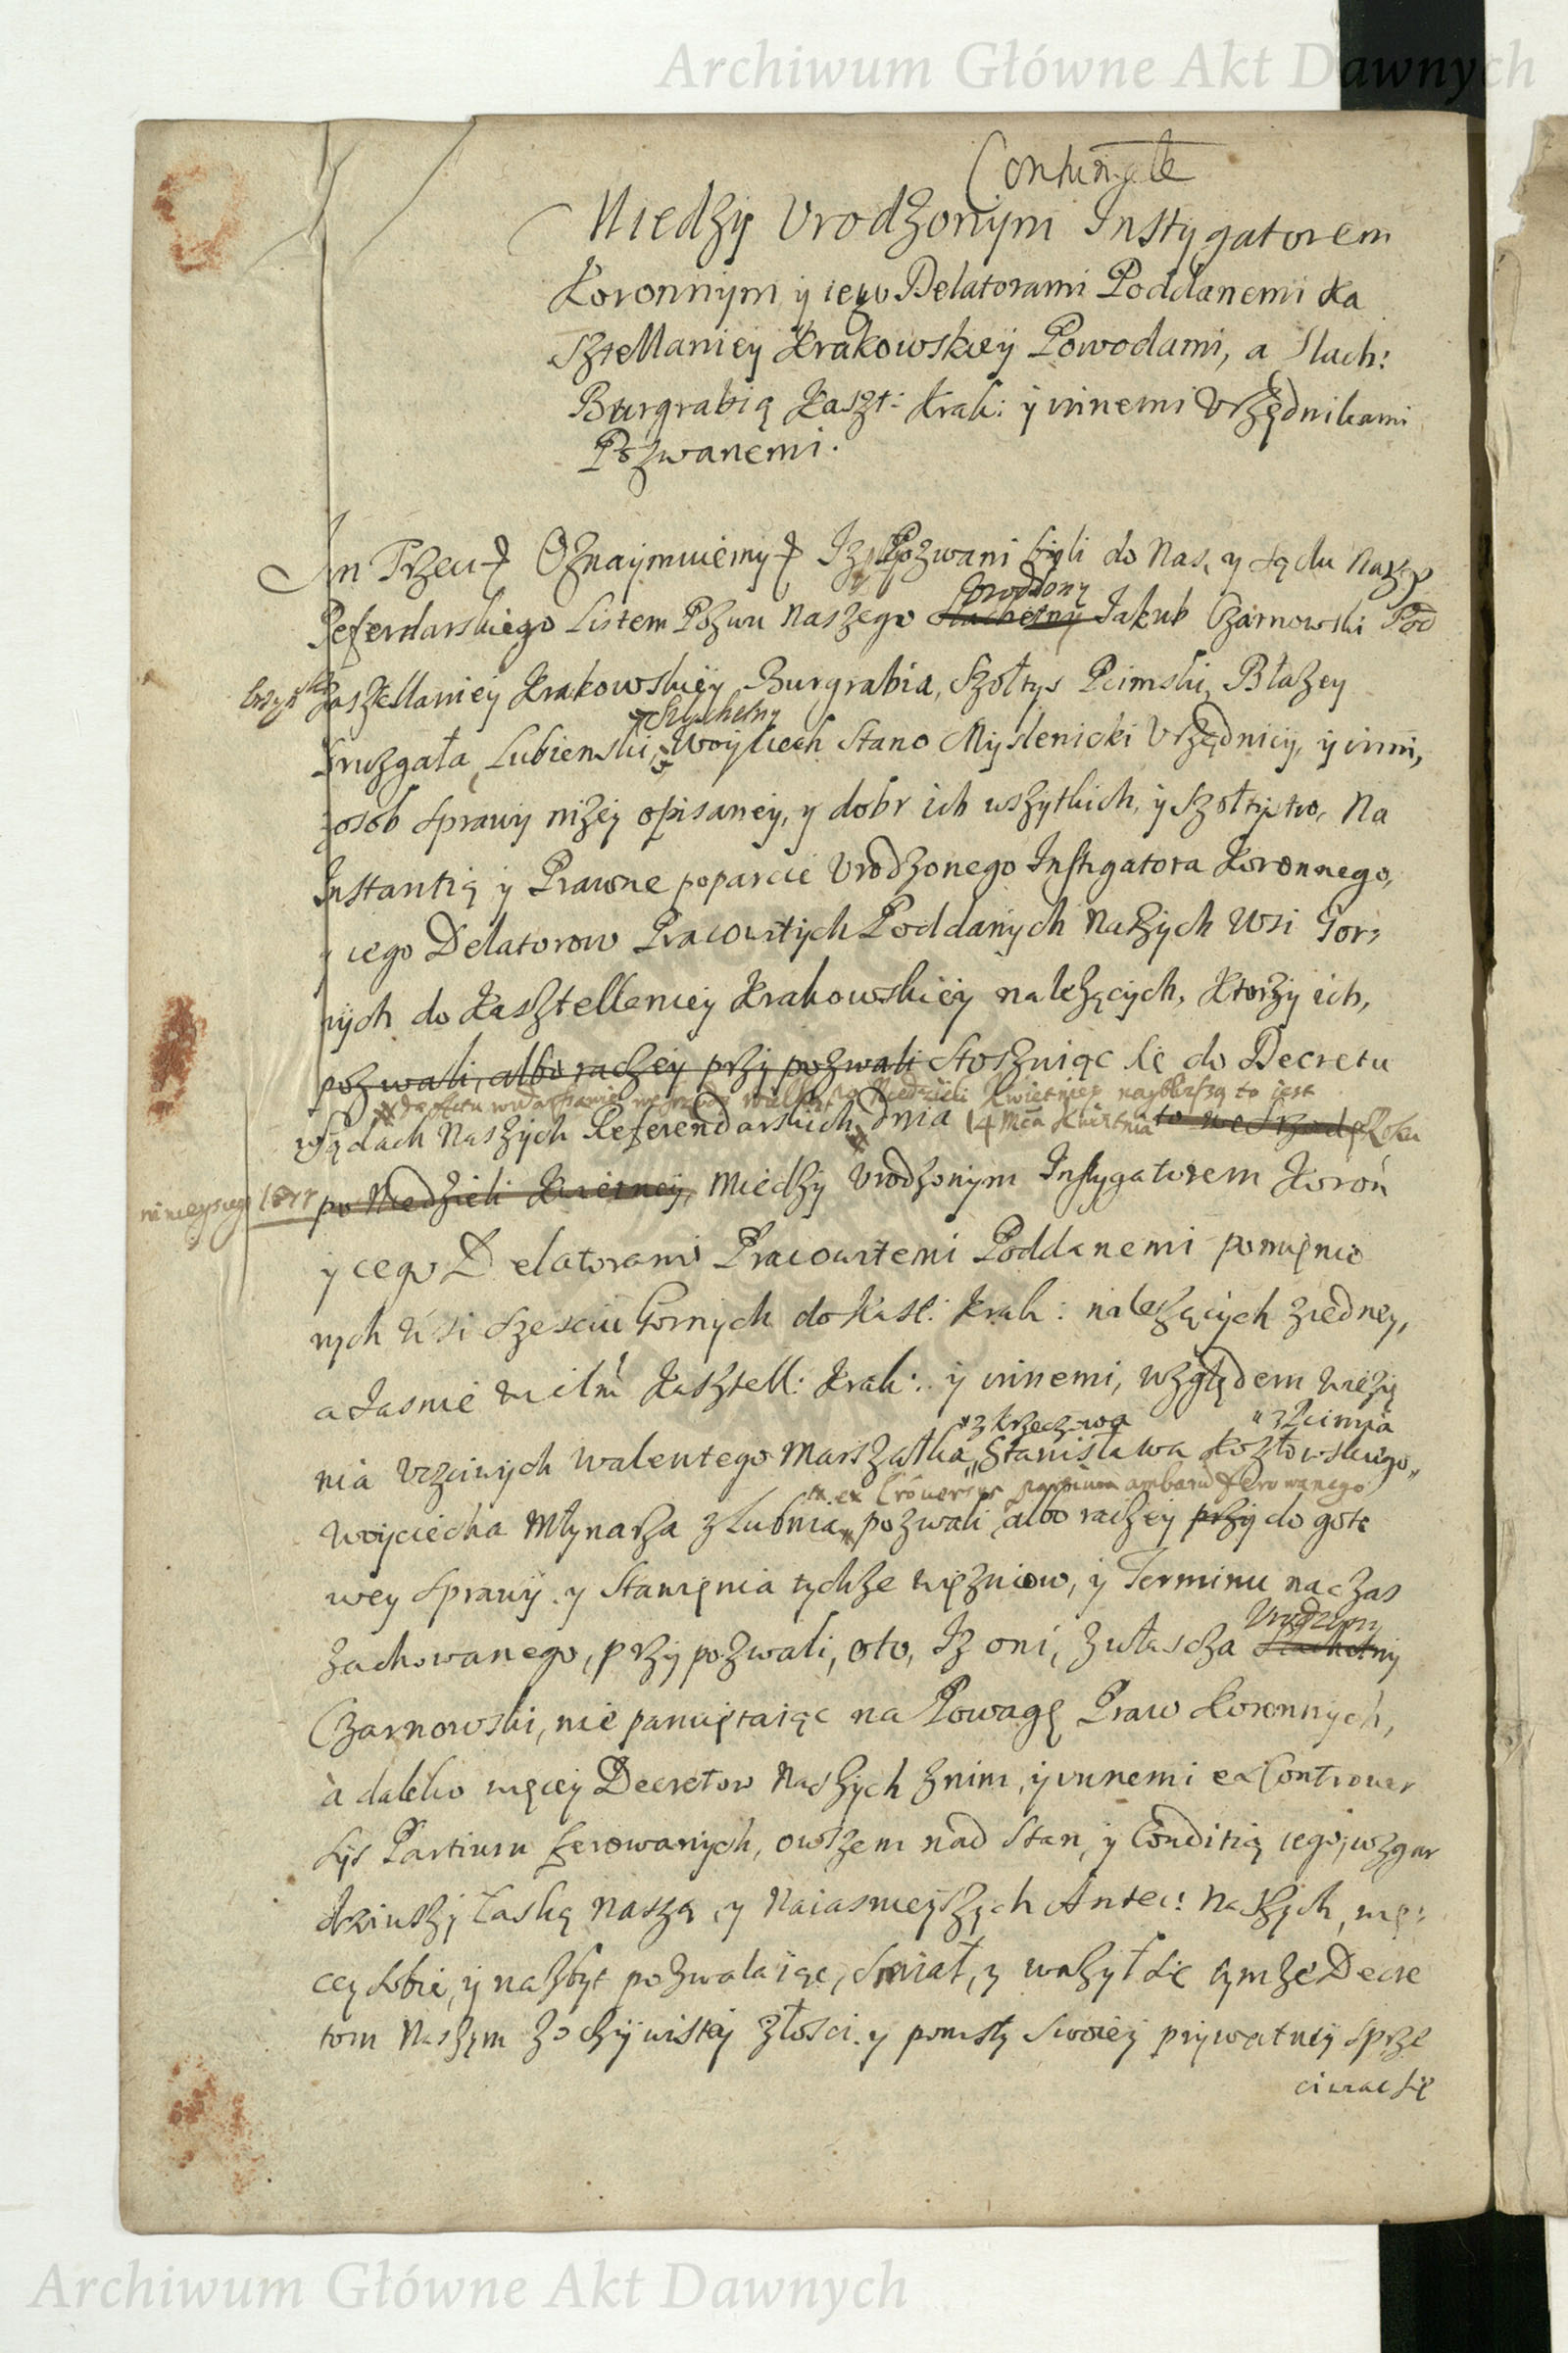 Archiwum Główne Akt Dawnych
Miedzÿ Vrodzonÿm Instygatorem
Koronnÿm ÿ iego Delatorami Poddanemi Ka
sztellaniey Krakowskieÿ Powodami, a Slach:
Burgrabią Kaszt: Krak: ÿ innemi Vrzędnikami
Pozwanemi.
Oznaymuiemy Iz Pozwani bÿli do Nas, y Sądu Nasze
Referndarskiego Listem Pozwu Naszego Slachetny Vrodzony Jakub Czarnowski Pod
Kasztellaniey Krakowskieÿ Burgrabia, Szołtys Pcimski, Błazey
Lubienski, Szlachetny Woÿciech Stano Myslenicki Vrzędnicÿ, ÿ inni,
z osob Sprawÿ nizeÿ opisaneÿ, y dobr ich wszytkich, ÿ Szołtÿstw, Na
Instantią ÿ Prawne poparcie Vrodzonego Instigatora Koronnego,
y iego Delatorow Pracowitÿch Poddanÿch Naszÿch Wsi Gor,
nÿch do Kasztellanieÿ Krakowskieÿ nalezącÿch, Ktorzÿ ich,
pozwali, albo raczeÿ przÿ pozwali Stosuiąc się do Decretu
w Sądach Naszÿch Referendarskich, Dnia 14 Mca Kwietnia
po Niedzieli Kwietneÿ, Miedzÿ Vrodzonÿm Instygatorem Koroń
ÿ iego Delatorami Pracowitemi Poddanemi pomięnio
nÿch Wsi Szesciu Gornÿch do Kaszt: Krak: nalezącÿch z iedneÿ,
a Jasnie Wielm Kasztell: Krak: ÿ innemi, względem Więzię
nia Vczciwÿch Walentego Marszałka, z Krzeczowa Stanisława Kozłowskiego, z Pcimia
Woÿciecha Młÿnarza z Lubnia, pozwali, albo raczeÿ przÿ do goto
weÿ Sprawÿ y Stawięnia tychze więzniow, ÿ Terminu na czas
zachowanego, przÿ pozwali, oto, Iz oni, zwłascza Slachetny Vrodzony
Czarnowski, nie pamiętaiąc na Powagę Praw Koronnÿch,
a daleko więceÿ Decretow Naszÿch z nim, ÿ innemi ex Controuer
sÿs Partium ferowanÿch, owszem nad Stan, ÿ Conditią iego, wzgar
dziwszÿ Łaską naszą, y Naiasnieÿszÿch Antec: Naszÿch, wię:
ceÿ sobie, ÿ nazbÿt pozwalaiąc, smiał, y wazÿł się tymze Decre
tom Naszym z oczÿwisteÿ złosci y pomstÿ swoieÿ prÿwatneÿ sprze
ciwiac się
Archiwum Główne Akt Dawnych